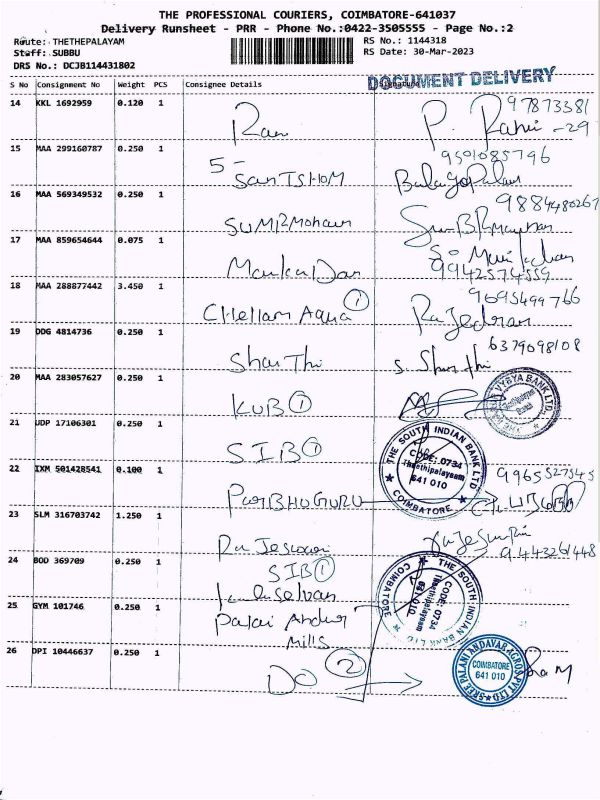 THE PROFESSIONAL COURIERS, COIMBATORE-641037
Delivery Runsheet - PRR - Phone No.:0422-3505555 - Page No.:2
Route: THETHEPALAYAM
Staff: SUBBU
DRS No.: DCJB114431802
RS No.: 1144318
RS Date: 30-Mar-2023
DOCUMENT DELIVERY
S No Consignment No Weight PCS Consignee Details Signature
14 KKL 1692959 0.120 1 Ram P. 97873381
-29
15 MAA 299160787 0.250 1 9501085796
5- SanTSHOM Balagopalan
16 MAA 569349532 0.250 1 9884480267
17 MAA 859654644 0.075 1
9942574559
18 MAA 288877442 3.450 1 Chellam Aqua 1 9695499766
Rajedran
19 DDG 4814736 0.250 1 ShanThi S. Shanthi 6379098108
20 MAA 283057627 0.250 1 KUB 1
VYSYA BANK LTD
21 UDP 17106301 0.250 1 SIB 1
THE SOUTH INDIAN BANK LTD
CODE: 0734
Theethipalayam
641 010
COIMBATORE
22 IXM 501428541 0.100 1 PARIBHUGURU 9965527545
23 SLM 316703742 1.250 1 Rajeswari 9443261448
24 BOD 369709 0.250 1 SIB 1
THE SOUTH INDIAN BANK LTD
CODE: 0734
Theethipalayam
641 010
COIMBATORE
25 GYM 101746 0.250 1 Palai Andur
Mills
26 DPI 10446637 0.250 1 DO 2
SREE PALANI ANDAVAR AGROS PVT LTD
COIMBATORE
641 010